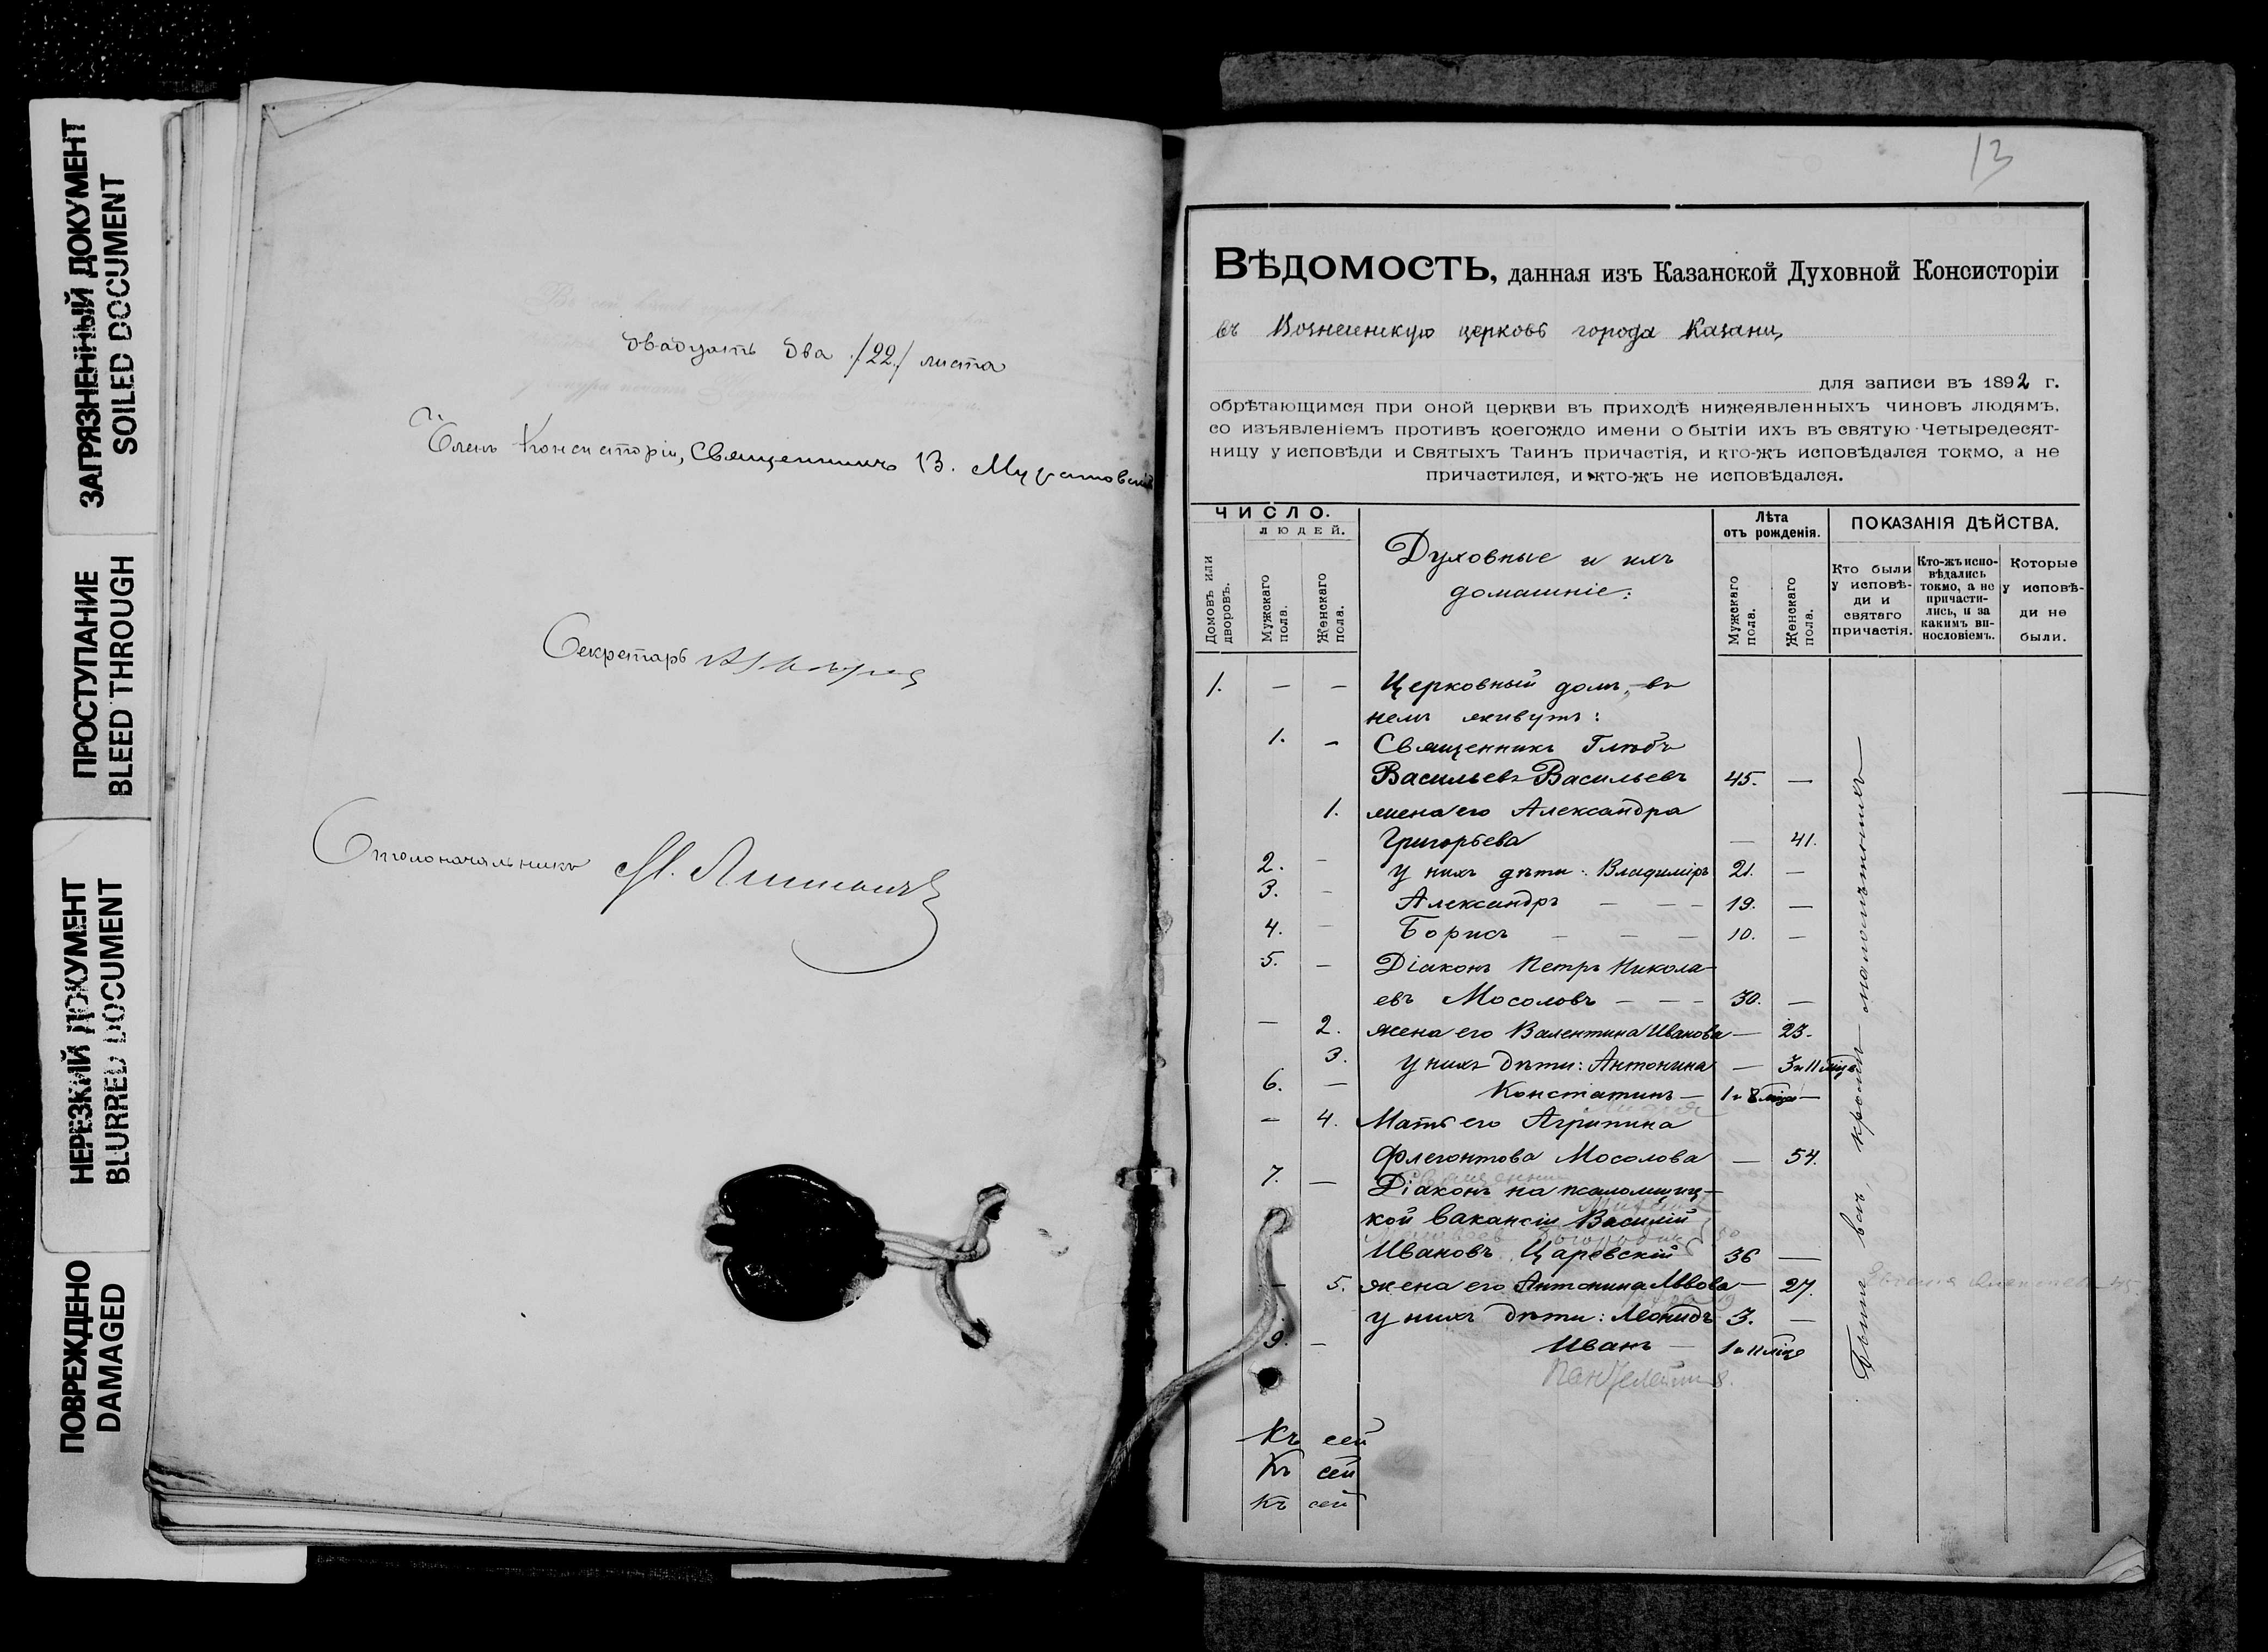 ЗАГРЯЗНЕННЫЙ ДОКУМЕНТ
SOILED DOCUMENT
ПРОСТУПАНИЕ
BLEED THROUGH
НЕРЕЗКИЙ ДОКУМЕНТ
BLURRED DOCUMENT
ПОВРЕЖДЕНО
DAMAGED
двадцать два /22/ листа
Членъ Консисторіи, Священникъ В.
Секретарь
Столоначальникъ
13
ВѢДОМОСТЬ, данная изъ Казанской Духовной Консисторіи
въ Вознесенскую церковь города Казани,
для записи въ 1892 г.
обрѣтающимся при оной церкви въ приходѣ нижеявленныхъ чиновъ людямъ,
со изъявленіемъ противъ коегождо имени о бытіи ихъ въ святую Четыредесят-
ницу у исповѣди и Святыхъ Таинъ причастія, и кто-жъ исповѣдался токмо, а не
причастился, и кто-жъ не исповѣдался.
ЧИСЛО.
ЛЮДЕЙ.
Домовъ или дворовъ.
Мужскаго пола.
Женскаго пола.
Духовные и ихъ
домашніе:
Лѣта
отъ рожденія.
Мужскаго пола.
Женскаго пола.
ПОКАЗАНІЯ ДѢЙСТВА.
Кто были у исповѣди и святаго причастія.
Кто-жъ исповѣдались токмо, а не причастились, и за какимъ винословіемъ.
Которые у исповѣди не были.
1. — — Церковный домъ, въ
немъ живутъ:
1. — Священникъ Глѣбъ
Васильевъ Васильевъ 45. —
1. жена его Александра
Григорьева — 41.
2. — у нихъ дѣти: Владиміръ 21. —
3. — Александръ — — — 19. —
4. — Борисъ — — — 10. —
5. — Діаконъ Петръ Никола-
евъ Мосоловъ — — — 30. —
— 2. жена его Валентина Иванова — 23.
3. у нихъ дѣти: Антонина — 3 и 11 мцѣв
6. — Констатинъ — 1 и 8 мцѣв —
— 4. Мать его Агрипина
Флегонтова Мосолова — 54.
7. — Діаконъ на псаломщиц-
кой вакансіи Василій
Ивановъ Царевскій 36 —
— 5. жена его Антонина Львова — 27.
у нихъ дѣти: Леонидъ 3. —
9. — Иванъ — 1 и 11 мцѣв
Пантелеймон 8.
Были всѣ, кромѣ малолѣтнихъ
Къ сей
Къ сей
Къ сей